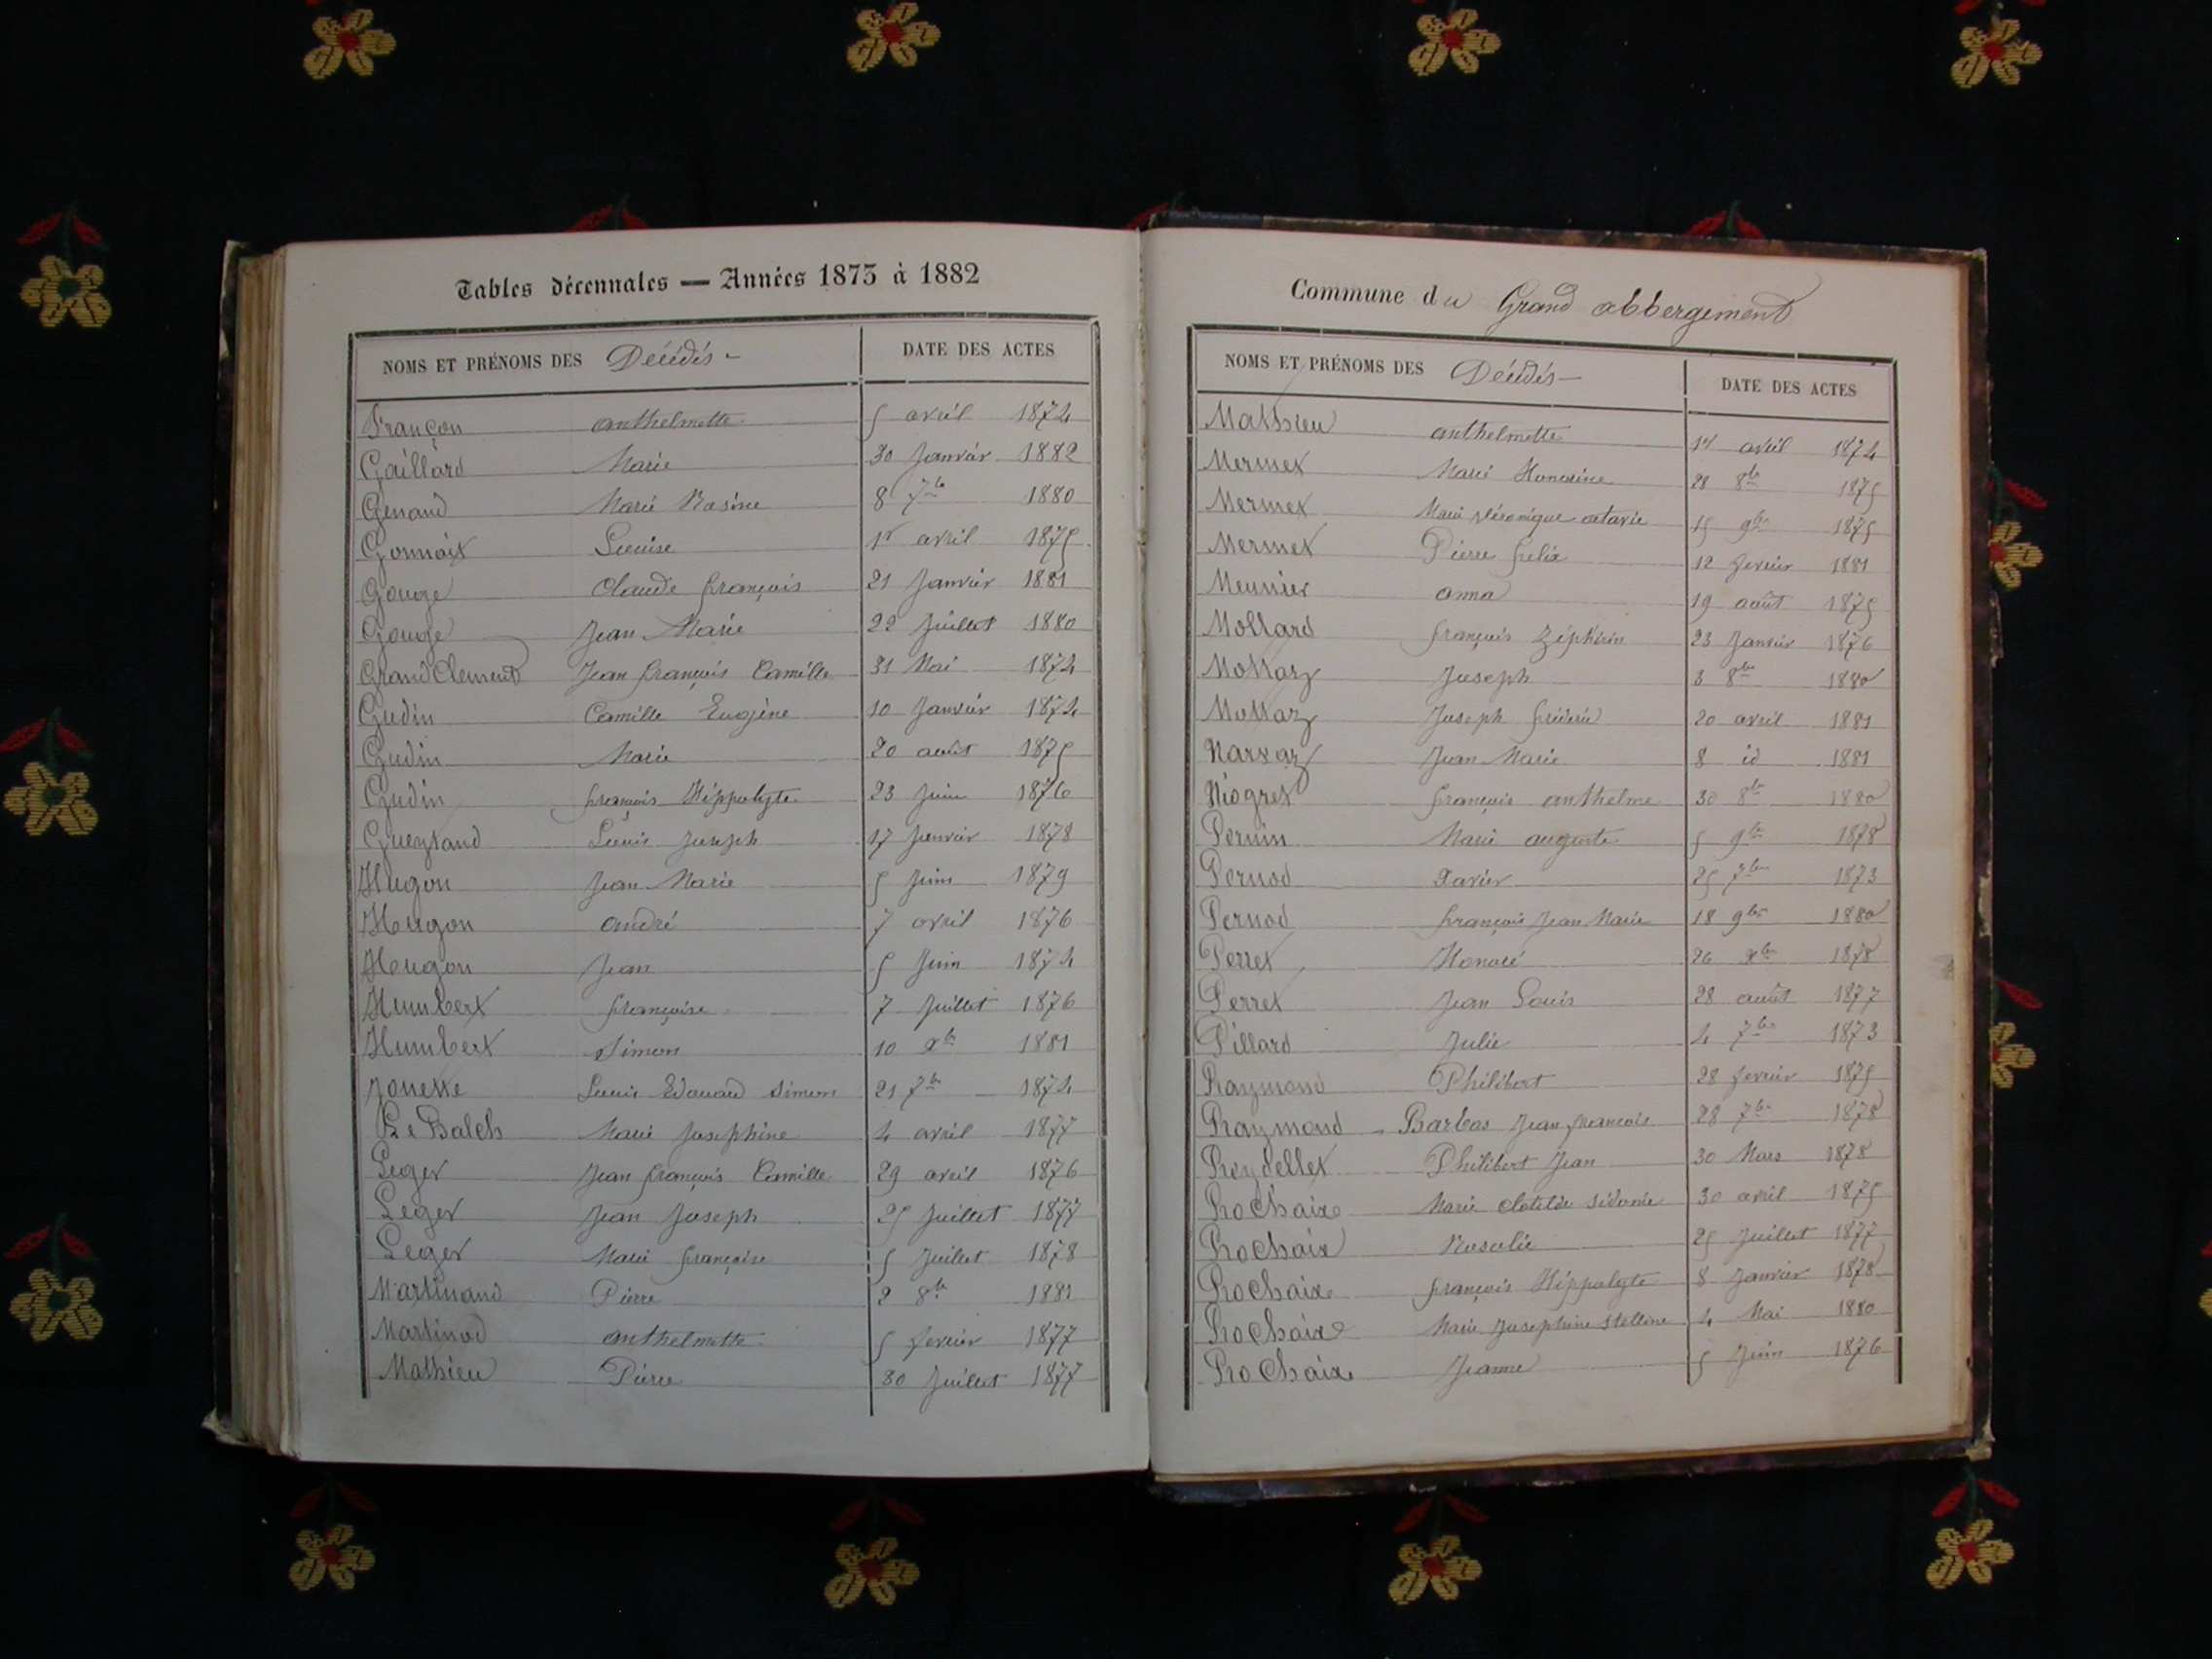 Tables décennales — Années 1873 à 1882
NOMS ET PRÉNOMS DES Décédés - DATE DES ACTES
Françon anthelmette 5 avril 1874
Gaillard Marie 30 Janvier 1882
Genand Marie Rosine 8 7bre 1880
Gonnoix Louise 1er avril 1875
Gouge Claude françois 21 Janvier 1881
Gouge Jean Marie 22 Juillet 1880
Grand Clement Jean françois Camille 31 Mai 1874
Gudin Camille Eugène 10 Janvier 1874
Gudin Marie 20 août 1875
Gudin françois Hippolyte 23 Juin 1876
Gueyraud Louis Joseph 17 Janvier 1878
Hugon Jean Marie 5 Juin 1879
Hugon andré 7 avril 1876
Hougon Jean 5 Juin 1874
Humbert françoise 7 Juillet 1876
Humbert Simon 10 xbre 1881
Jouesse Louis Edouard Simon 21 7bre 1874
Le Balch Marie Josephine 4 avril 1877
Leger Jean françois Camille 29 avril 1876
Leger Jean Joseph 25 Juillet 1877
Leger Marie françoise 5 Juillet 1878
Martinand Pierre 2 8bre 1881
Martinod anthelmette 5 fevrier 1877
Mathieu Pierre 30 Juillet 1877
Commune du Grand abbergement
NOMS ET PRÉNOMS DES Décédés - DATE DES ACTES
Mathieu anthelmette 1er avril 1874
Mermet Marie Honorine 28 8bre 1875
Mermet Marie Véronique octavie 15 9bre 1875
Mermet Pierre felix 12 fevrier 1881
Meunier anna 19 août 1875
Mollard françois Zéphirin 23 Janvier 1876
Mottaz Joseph 3 8bre 1880
Mottaz Joseph fréderic 20 avril 1881
Narvaz Jean Marie 8 id 1881
Niogret françois anthelme 30 8bre 1880
Pernin Marie auguste 5 9bre 1878
Pernod Xavier 25 7bre 1873
Pernod françois Jean Marie 18 9bre 1880
Perret Honoré 26 xbre 1878
Perret Jean Louis 28 août 1877
Pillard Julie 4 7bre 1873
Raymond Philibert 28 fevrier 1875
Raymond Barbas Jean françois 28 7bre 1878
Reydellet Philibert Jean 30 Mars 1878
Rochaix Marie Clotilde Sidonie 30 avril 1875
Rochaix Rosalie 25 Juillet 1877
Rochaix françois Hippolyte 8 Janvier 1878
Rochaix Marie Josephine Stelline 4 Mai 1880
Rochaix Jeanne 5 Juin 1876